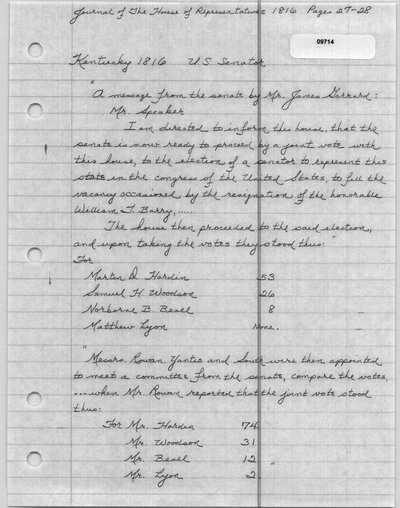 Journal of The House of Representatives 1816 Pages 27-28
09714
Kentucky 1816 U.S. Senator
"A message from the senate by Mr. James Garrard:
Mr. Speaker
I am directed to inform this house, that the
senate is now ready to proceed by a joint vote with
this house, to the election of a senator to represent this
state in the congress of the United States, to fill the
vacancy occasioned by the resignation of the honorable
William T. Barry,.....
The house then proceeded to the said election,
and upon taking the votes they stood thus:"
For
Martin D. Hardin 53
Samuel H. Woodson 26
Norborne B. Beall 8
Matthew Lyon None.
"Messrs. Rowan, Yantes and South were then appointed
to meet a committee from the senate, compare the votes,
....when Mr. Rowan reported that the joint vote stood
thus:
For Mr. Hardin 74
Mr. Woodson 31
Mr. Beall 12
Mr. Lyon 2."